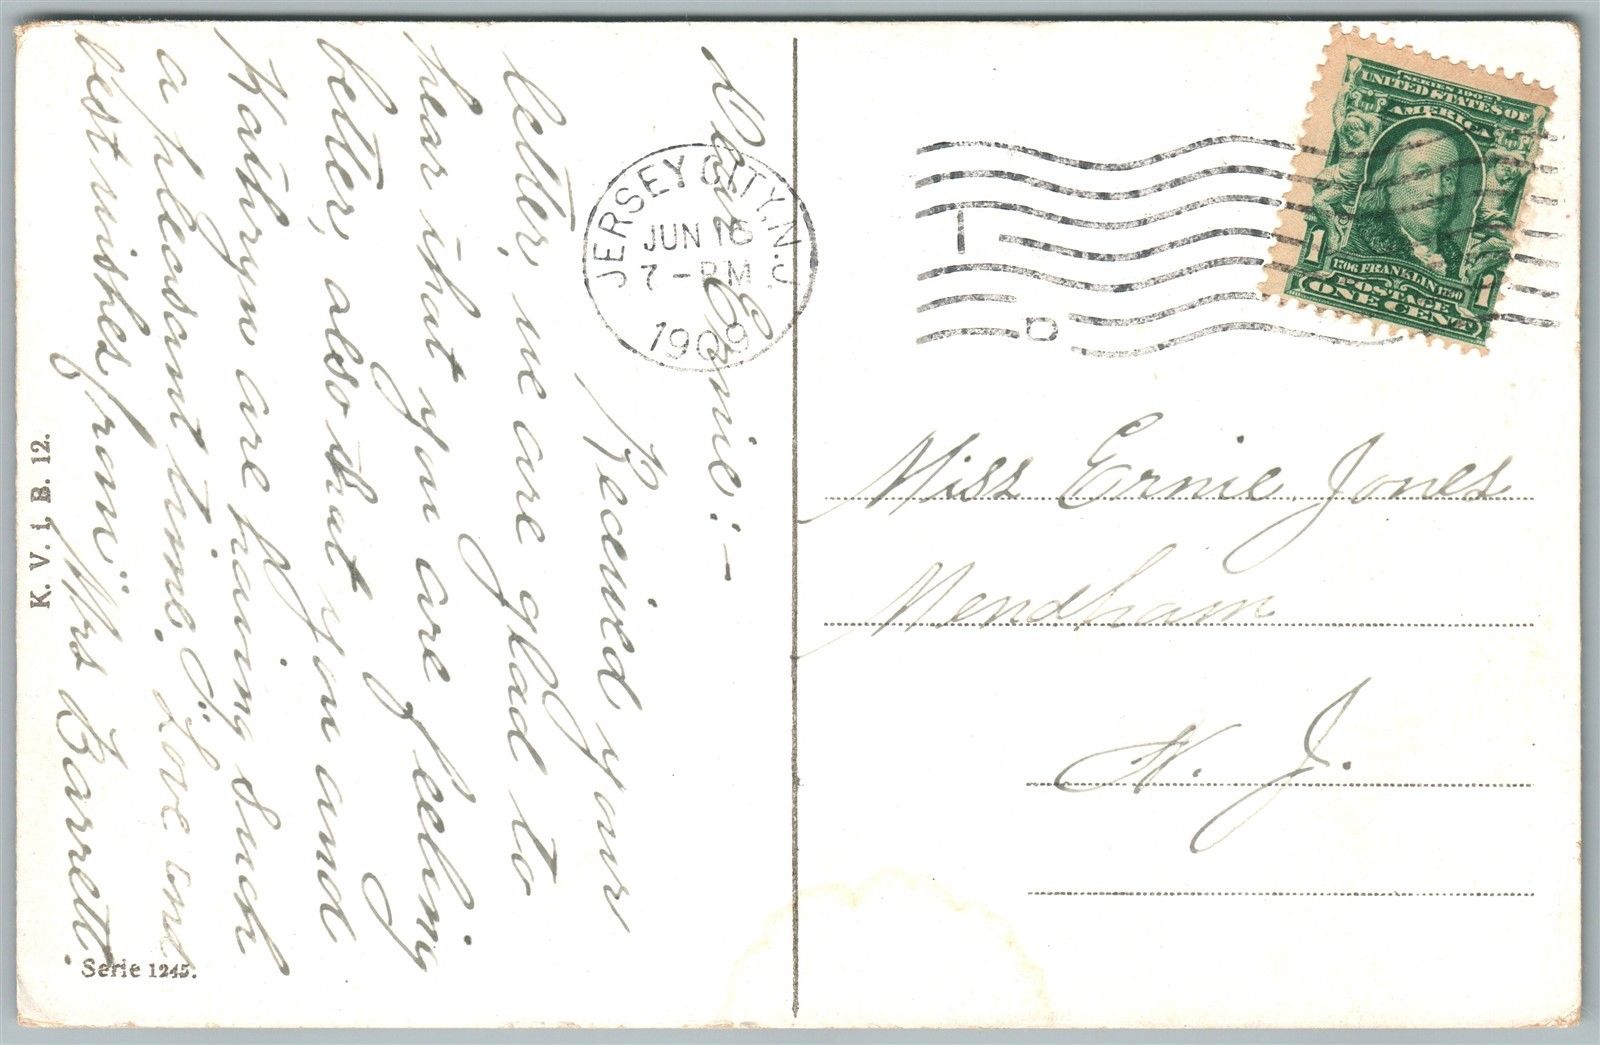 Dear Ernie:-
Received your
letter, we are glad to
hear that you are feeling
better, also that you and
Kathryn are having such
a pleasant time. Love and
best wishes from Mrs Barrett.
K. V. i. B. 12.
Serie 1245.
JERSEY CITY, N.J.
JUN 16
7-PM
1909
1
D
SERIES 1902
UNITED STATES OF
AMERICA
1706 FRANKLIN 1790
POSTAGE
1 ONE CENT 1
Miss Ernie Jones
Mendham
N. J.